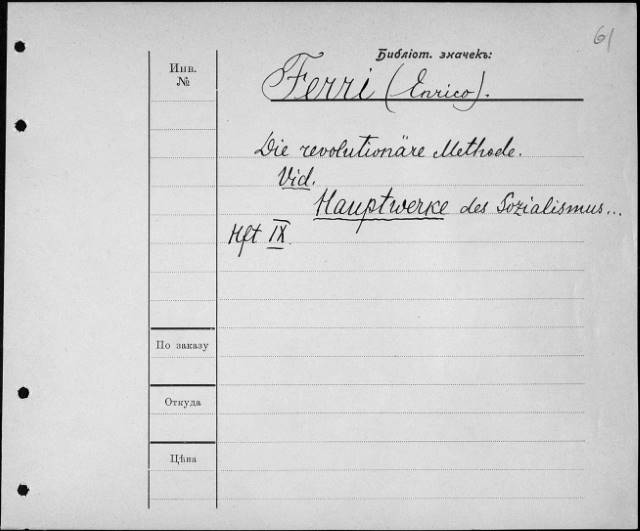 61
Библіот. значекъ:
Инв.
№
Ferri (Enrico).
Die revolutionäre Methode.
Vid.
Hauptwerke des Sozialismus...
Hft IX.
По заказу
Откуда
Цѣна